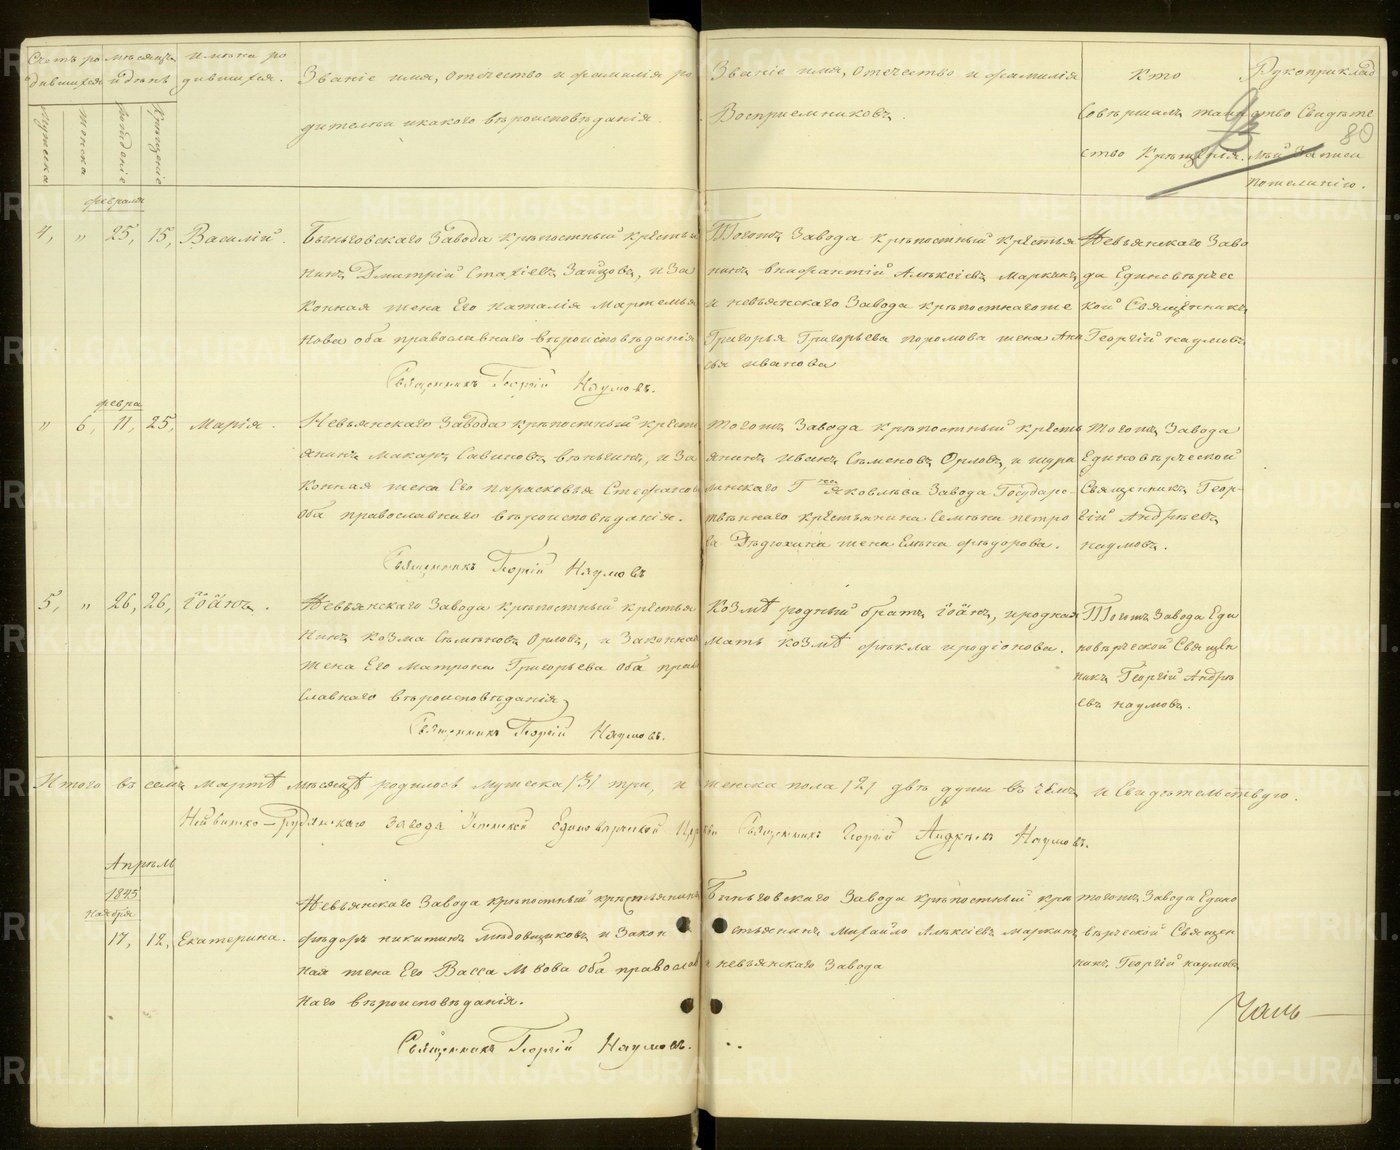 Счетъ ро
дившихся
мѣсяцъ
и день
имена ро
дившихся.
Званіе имя, отчество и фамилія ро
дителей и какого вѣроисповѣданія.
Званіе имя, отчество и фамилія
Воспріемниковъ.
Кто
совѣршалъ таин
ство Крѣщенія.
Рукоприклад
ство Свидѣте
лей записи
пожеланію.
80
Мужеска
женска
рождение
Крещение
февраля
4, " 25, 15, Василій.
Быньговскаго Завода крѣпостный крестья
нинъ Дмитрій Стахіевъ Зайцовъ, и За
конная жена Его Наталія Мартемья
нова оба православнаго вѣроисповѣданія
Священникъ Георгій Наумовъ.
Тогожъ Завода крѣпостный крестья
нинъ Внифантій Алѣксіевъ Маркинъ
и невьянскаго Завода крѣпостнагоже
Григорья Григорьева поромова жена Ана
сья иванова
Невьянскаго Заво
да Единовѣрчес
кой Священникъ
Георгій наумовъ
февра
" 6, 11, 25, Марія.
Невьянскаго Завода крѣпостный кресть
янинъ Макаръ Савиновъ вѣньгинъ, и За
конная жена Его парасковья Стефанов
оба православнаго вѣроисповѣданія.
Священникъ Георгій Наумовъ
тогожъ Завода крѣпостный кресть
янинъ иванъ Сѣменовъ Орловъ, и шура
линскаго Г на Яковлѣва Завода Государс-
твѣннаго крѣстьянина Семѣна петро
ва Дѣдюхина жена Елѣна фѣдорова.
тогожъ Завода
Единовѣрческой
Священникъ Геор-
гій Андрѣевъ
наумовъ.
5, " 26, 26, Іоаннъ.
Невьянскаго Завода крѣпостный крѣстья
нинъ козма Сѣмѣновъ Орловъ, и Законная
жена Его Матрона Григорьева Оба право
славнаго вѣроисповѣданія
Священникъ Георгій Наумовъ.
Козмѣ родный братъ Іоанъ, и родная
мать козмѣ фѣкла иродіонова.
Тогожъ Завода Еди
новѣрческой Священ
никъ Георгій Андрѣ
евъ наумовъ.
Итого въ семъ мартѣ мѣсяцѣ родилось мужеска /3/ три, и женска пола /2/ двѣ души въ чѣмъ и Свидѣтельствую.
Нейвинско-Рудянскаго завода Успенской Единовѣрческой Церкви Священникъ Георгій Андрѣевъ Наумовъ.
Апрѣль
1845
Ноября
17, 12, Екатерина.
Невьянскаго Завода крѣпостный крѣстьянинъ
фѣдоръ никитинъ мѣдовщиковъ и Закон
ная жена Его Васса Львова Оба православ
наго вѣроисповѣданія.
Священникъ Георгій Наумовъ.
Быньговскаго Завода крѣпостный крѣ
стьянинъ Михайло Алѣксіевъ Маркинъ
и невьянскаго Завода
тогожъ Завода Едино
вѣрческой Священ
никъ Георгій наумовъ
METRIKI.GASO-URAL.RU